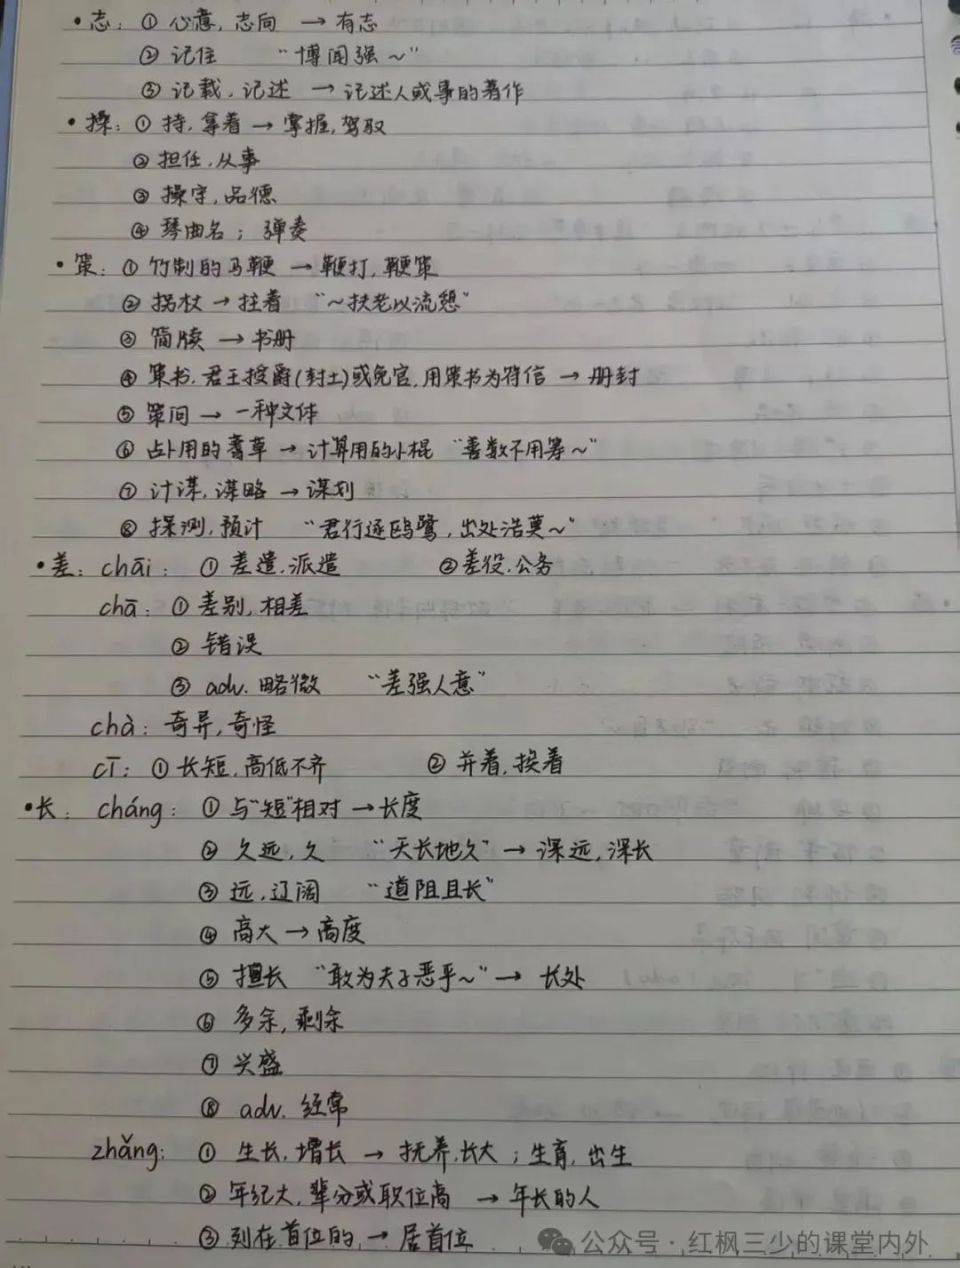 •志：① 心意，志向 → 有志
② 记住 “博闻强～”
③ 记载，记述 → 记述人或事的著作
•操：① 持，拿着 → 掌握，驾驭
② 担任，从事
③ 操守，品德
④ 琴曲名；弹奏
•策：① 竹制的马鞭 → 鞭打，鞭策
② 拐杖 → 拄着 “～扶老以流憩”
③ 简牍 → 书册
④ 策书，君王授爵(封土)或免官，用策书为符信 → 册封
⑤ 策问 → 一种文体
⑥ 占卜用的蓍草 → 计算用的小棍 “善数不用筹～”
⑦ 计谋，谋略 → 谋划
⑧ 探测，预计 “君行逐鸥鹭，出处浩莫～”
•差：chāi：① 差遣，派遣 ②差役，公务
chā：① 差别，相差
② 错误
③ adv. 略微 “差强人意”
chà：奇异，奇怪
cī：① 长短，高低不齐 ② 并着，挨着
•长：cháng：① 与“短”相对 → 长度
② 久远，久 “天长地久” → 深远，深长
③ 远，辽阔 “道阻且长”
④ 高大 → 高度
⑤ 擅长 “敢为夫子恶乎～” → 长处
⑥ 多余，剩余
⑦ 兴盛
⑧ adv. 经常
zhǎng：① 生长，增长 → 抚养，长大；生育，出生
② 年纪大，辈分或职位高 → 年长的人
③ 列在首位的 → 居首位
公众号·红枫三少的课堂内外